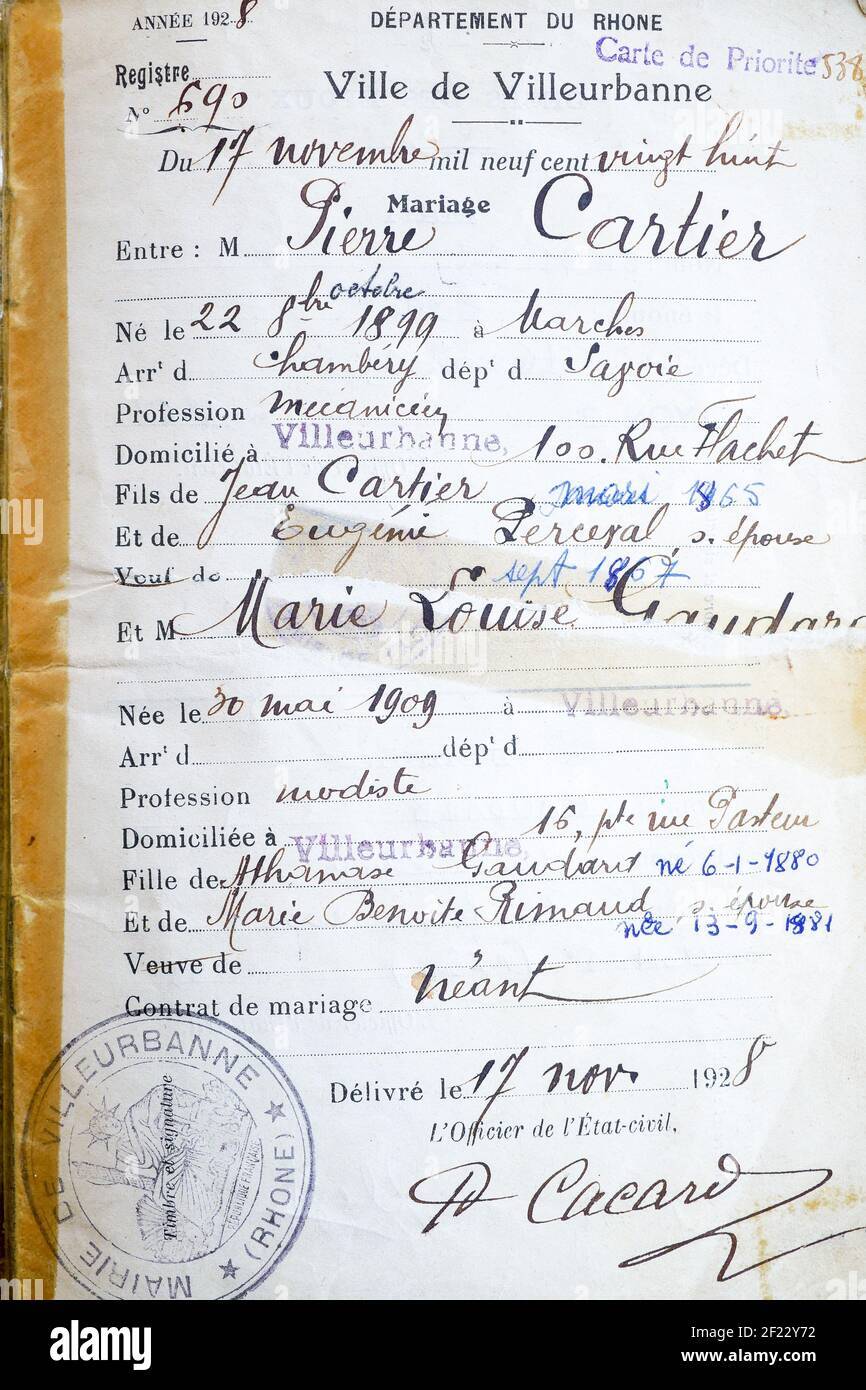 ANNÉE 1928
DÉPARTEMENT DU RHONE
Carte de Priorite 538
Registre
N° 690
Ville de Villeurbanne
Du 17 novembre mil neuf cent vingt huit
Mariage
Entre : M Pierre Cartier
octobre
Né le 22 8bre 1899 à Marches
Arrt d Chambéry dépt d Savoie
Profession mécanicien
Domicilié à Villeurbanne, 100. Rue Flachet
Fils de Jean Cartier mari 1865
Et de Eugénie Perceval, s. épouse
Veuf de sept 1867
Et M Marie Louise Gaudard
Née le 30 mai 1909 à Villeurbanne,
Arrt d dépt d
Profession modiste
Domiciliée à Villeurbanne, 16, pte rue Pasteur
Fille de Athanase Gaudard né 6-1-1880
Et de Marie Benoite Rimaud, s. épouse
née 13-9-1881
Veuve de
Contrat de mariage Néant
Délivré le 17 nov. 1928
L'Officier de l'État-civil,
Cacard
MAIRIE DE VILLEURBANNE
(RHONE)
Timbre et signature
RÉPUBLIQUE FRANÇAISE
alamy
Image ID: 2F22Y72
www.alamy.com